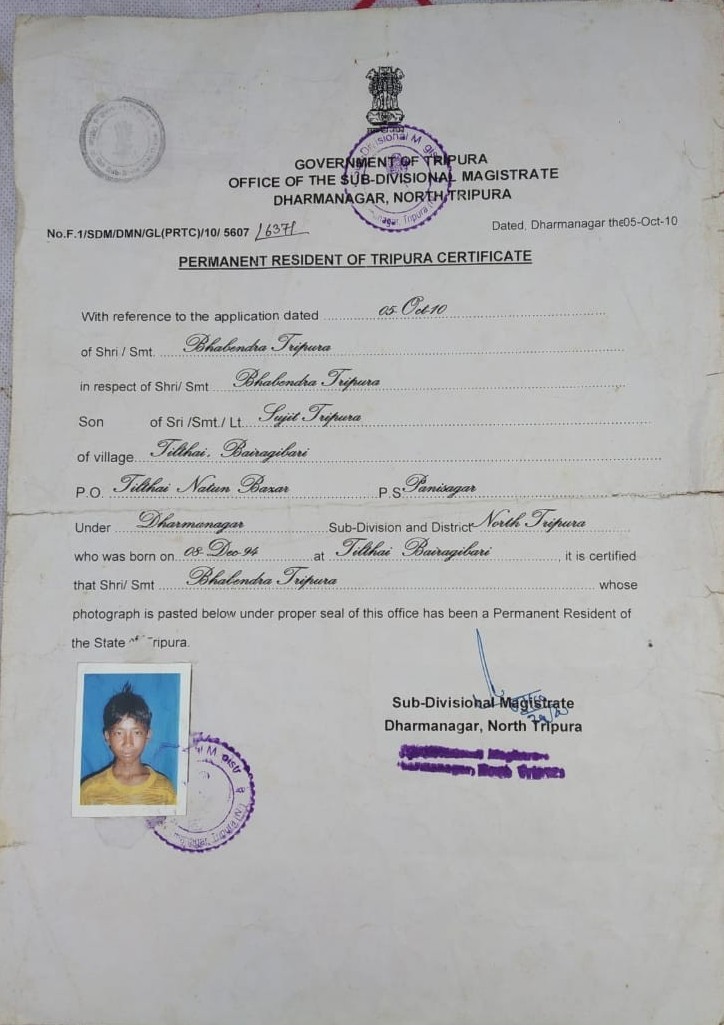 GOVERNMENT OF TRIPURA
OFFICE OF THE SUB-DIVISIONAL MAGISTRATE
DHARMANAGAR, NORTH TRIPURA
No.F.1/SDM/DMN/GL(PRTC)/10/ 5607
Dated, Dharmanagar the05-Oct-10
PERMANENT RESIDENT OF TRIPURA CERTIFICATE
With reference to the application dated 05-Oct-10
of Shri / Smt. Bhabendra Tripura
in respect of Shri/ Smt Bhabendra Tripura
Son of Sri /Smt./ Lt. Sujit Tripura
of village Tilthai, Bairagibari
P.O. Tilthai Natun Bazar P.S Panisagar
Under Dharmanagar Sub-Division and District North Tripura
who was born on 08-Dec-94 at Tilthai Bairagibari, it is certified
that Shri/ Smt Bhabendra Tripura whose
photograph is pasted below under proper seal of this office has been a Permanent Resident of
the State of Tripura.
Sub-Divisional Magistrate
Dharmanagar, North Tripura